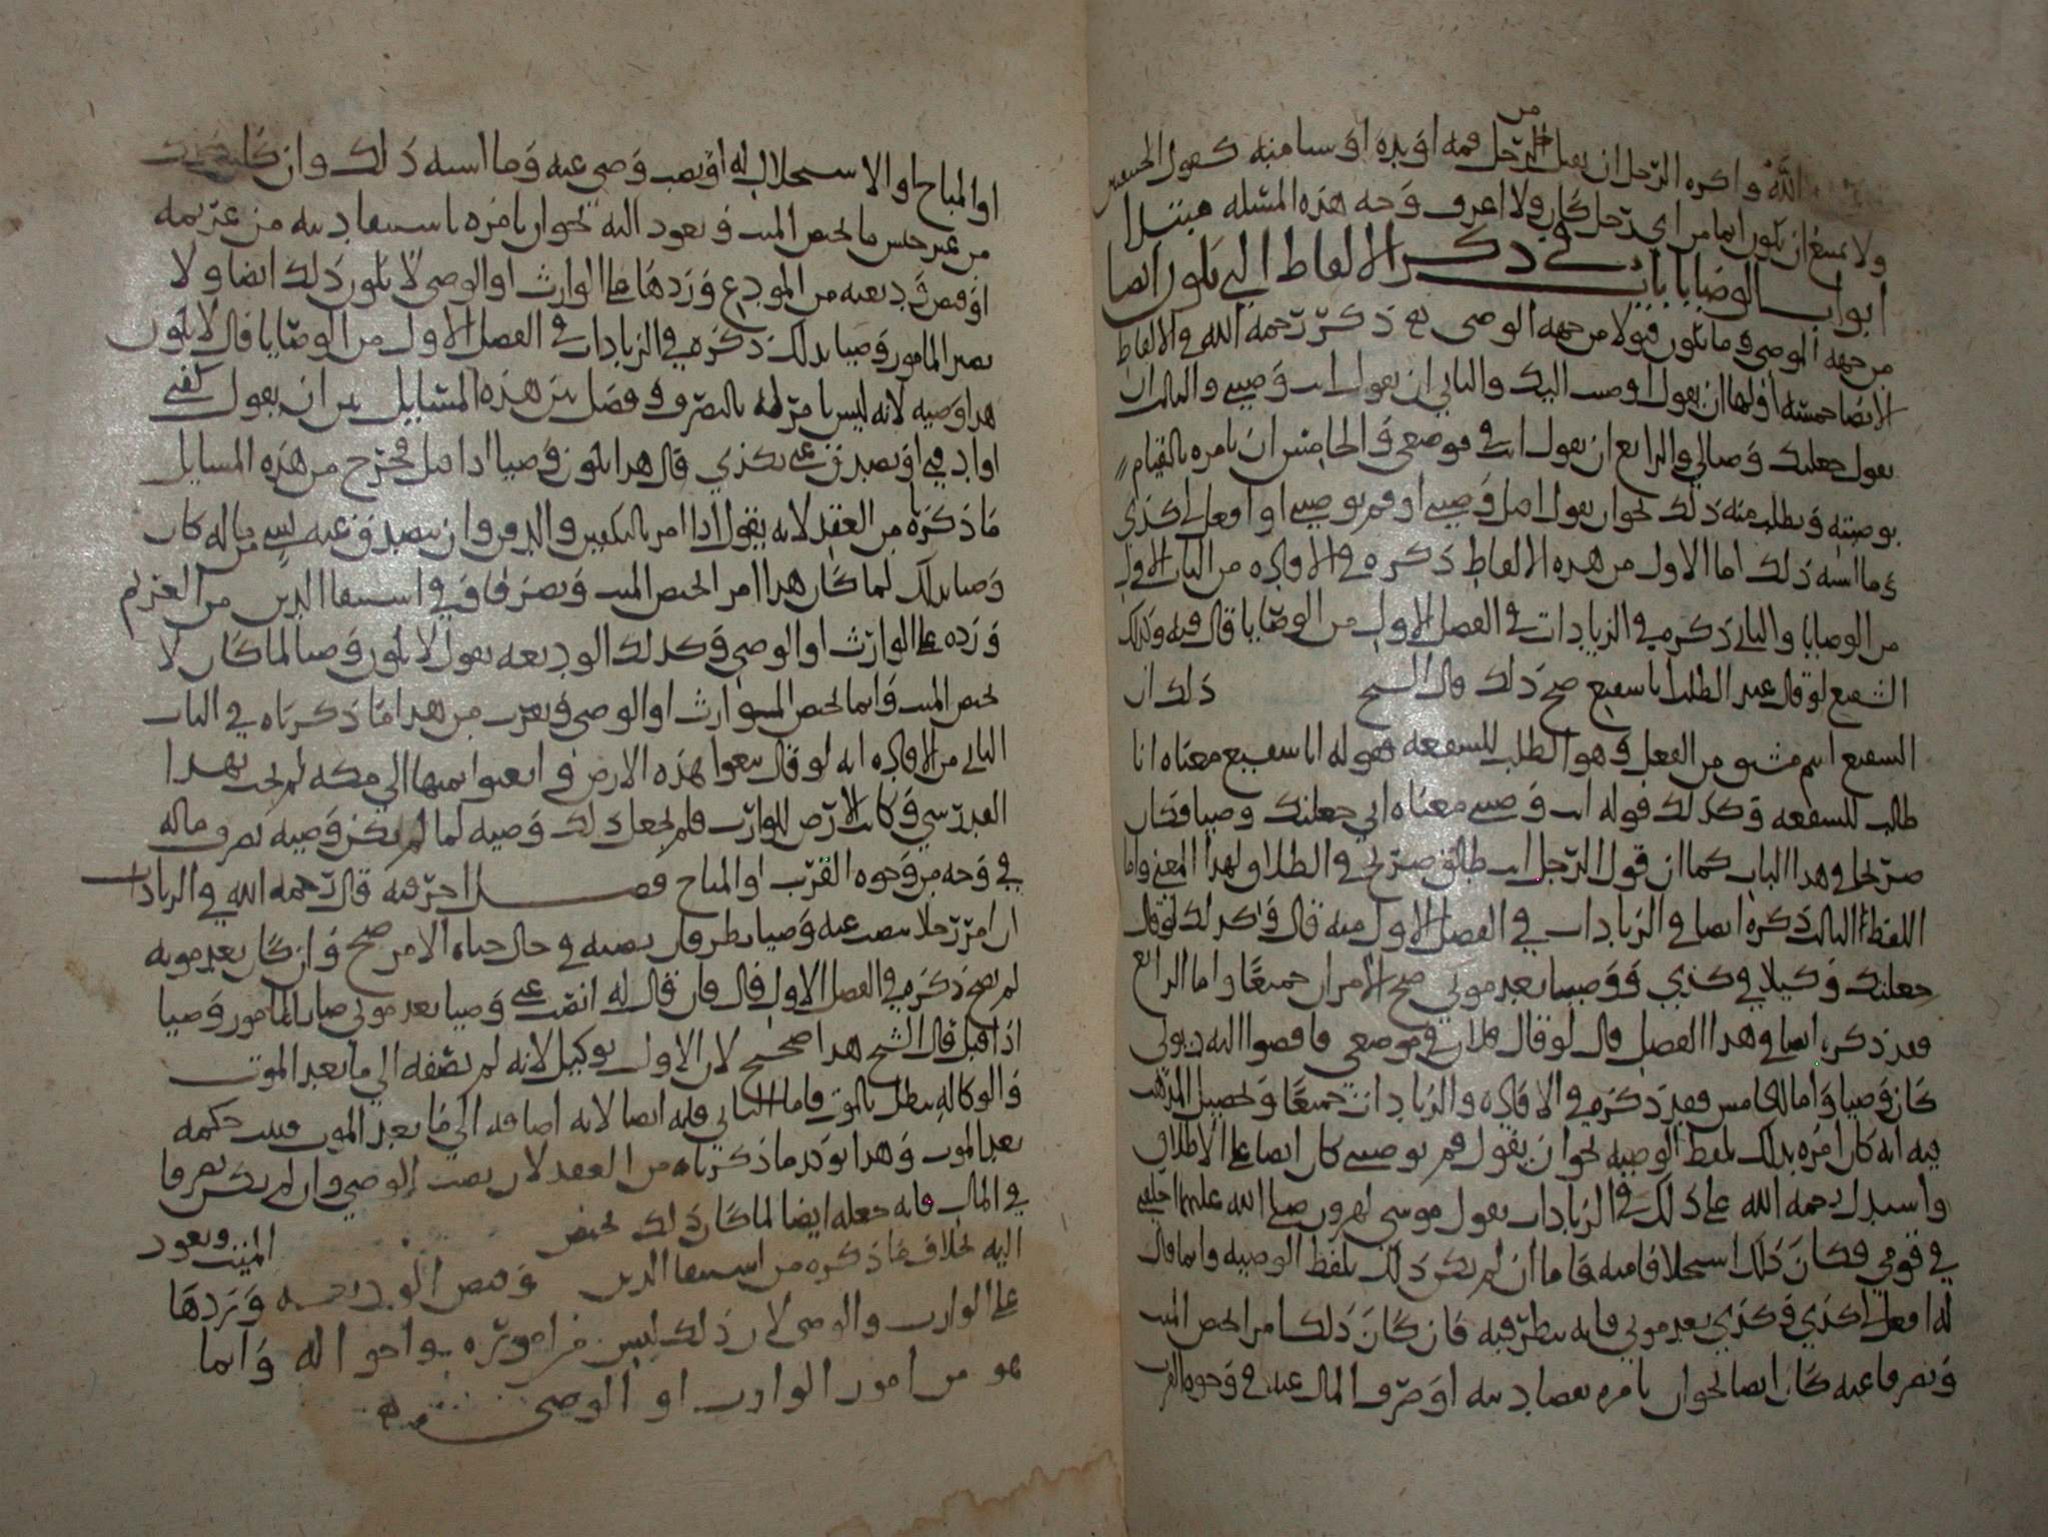 الله واكره الرجل ان يقبل من الرجل فمه او يده او شيا منه كقول الحسن
ولا يمنع ان يكون ايما من اي رجل كان ولا اعرف وجه هذه المسئلة مبتدا
ابواب الوصايا باب في ذكر الالفاظ التي تكون ايصا
من جهه الموصي وما يكون قبولا من جهه الوصي نعم ذكر رحمه الله في الالفاظ
الايصا خمسه اولها ان يقول اوصيت اليك والثاني ان يقول انت وصيي والثالث ان
يقول جعلتك وصيا لي والرابع ان يقول انت في موضعي والخامس ان يامره بالقيام
بوصيته ويطلب منه ذلك نحو ان يقول اقبل وصيتي او قم بوصيتي او افعل لي كذي
وما اشبه ذلك اما الاول من هذه الالفاظ ذكره في الافاده من الباب الاول
من الوصايا والثاني ذكره في الزيادات في الفصل الاول من الوصايا قال فيه وكذلك
الشفيع لو قال عند الطلب انا شفيع صح ذلك قال الشيخ ذلك ان
الشفيع اسم مشتق من الفعل وهو الطلب للشفعه فقوله انا شفيع معناه انا
طالب للشفعه وكذلك قوله انت وصيي معناه اني جعلتك وصيا فكان
صريحا في هذا الباب كما ان قول الرجل انت طالق صريح في الطلاق لهذا المعنى واما
اللفظ الثالث ذكره ايضا في الزيادات في الفصل الاول منه قال وكذلك لو قال
جعلتك وكيلا في كذي ووصيا بعد موتي صح الامران جميعا واما الرابع
فقد ذكره ايضا في هذا الفصل قال لو قال فلان في موضعي فاقضوا اليه ديوني
كان وصيا واما الخامس فقد ذكره في الافاده والزيادات جميعا وتحصيل المذهب
فيه انه كان امره بذلك بلفظ الوصيه نحو ان يقول قم بوصيتي كان ايصا على الاطلاق
واستدل رحمه الله على ذلك في الزيادات بقول موسى لهرون صلى الله عليهما اخلفني
في قومي فكان ذلك استخلافا منه فاما ان لم يكن ذلك بلفظ الوصيه وانما قال
له افعل لي كذي وكذي بعد موتي فانه ينظر فيه فان كان ذلك امرا يخص الميت
وتصرفا عنه كان ايصا نحو ان يامره بقضا دينه او صرف المال عنه في وجوه القرب
او المباح او الاستحلال له او نصب وصي عنه وما اشبه ذلك وان كان
من غير جنس ما يخص الميت ويعود اليه نحو ان يامره باستيفا دينه من غريمه
او قبض وديعته من المودع وردها على الوارث او الوصي لا يكون ذلك ايصا ولا
يصير المامور وصيا بذلك ذكره في الزيادات في الفصل الاول من الوصايا قال لا يكون
هذا وصيه لانه ليس بامر له بالتصرف وفصل بين هذه المسايل بين ان يقول كفني
او ادفني او تصدق عني بكذي قال هذا يكون وصيا اذا قبل فخرج من هذه المسايل
ما ذكرناه من العقد لانه يقول اذا امر بالتكفين والدفن وان يتصدق عنه بشي من ماله كان
وصيا بذلك لما كان هذا امر يخص الميت وتصرفا وفي استيفا الدين من الغريم
ورده على الوارث او الوصي وكذلك الوديعه يقول لا يكون وصيا لما كان لا
يخص الميت وانما يخص الوارث او الوصي ويقرب من هذا ما ذكرناه في الباب
الثاني من الافاده انه لو قال بيعوا هذه الارض وابعثوا بثمنها الى مكه لم يجب بهذا
القدر شي وكانت الارض للوارث فلم يجعل ذلك وصيه لما لم يكن وصيه بصرف ماله
في وجه من وجوه القرب او المباح فصل اخر منه قال رحمه الله في الزيادات
ان امر رجلا بنصب عنه وصيا نظر فان نصبه في حال حياه الامر صح وان كان بعد موته
لم يصح ذكره في الفصل الاول قال فان قال له انت عني وصيا بعد موتي صار المامور وصيا
اذا قبل قال الشيخ هذا صحيح لان الاول توكيل لانه لم يضفه الى ما بعد الموت
والوكاله تبطل بالموت فاما الثاني فانه ايصا لانه اضافه الى ما بعد الموت فيثبت حكمه
بعد الموت وهذا يويد ما ذكرناه من العقد لان نصب الوصي وان لم يكن تصرفا
في المال فانه جعله ايصا لما كان ذلك يخص الميت ويعود
اليه بخلاف ما ذكره من استيفا الدين وقبض الوديعه وردها
على الوارث والوصي لان ذلك ليس من اموره واحواله وانما
هو من امور الوارث او الوصي